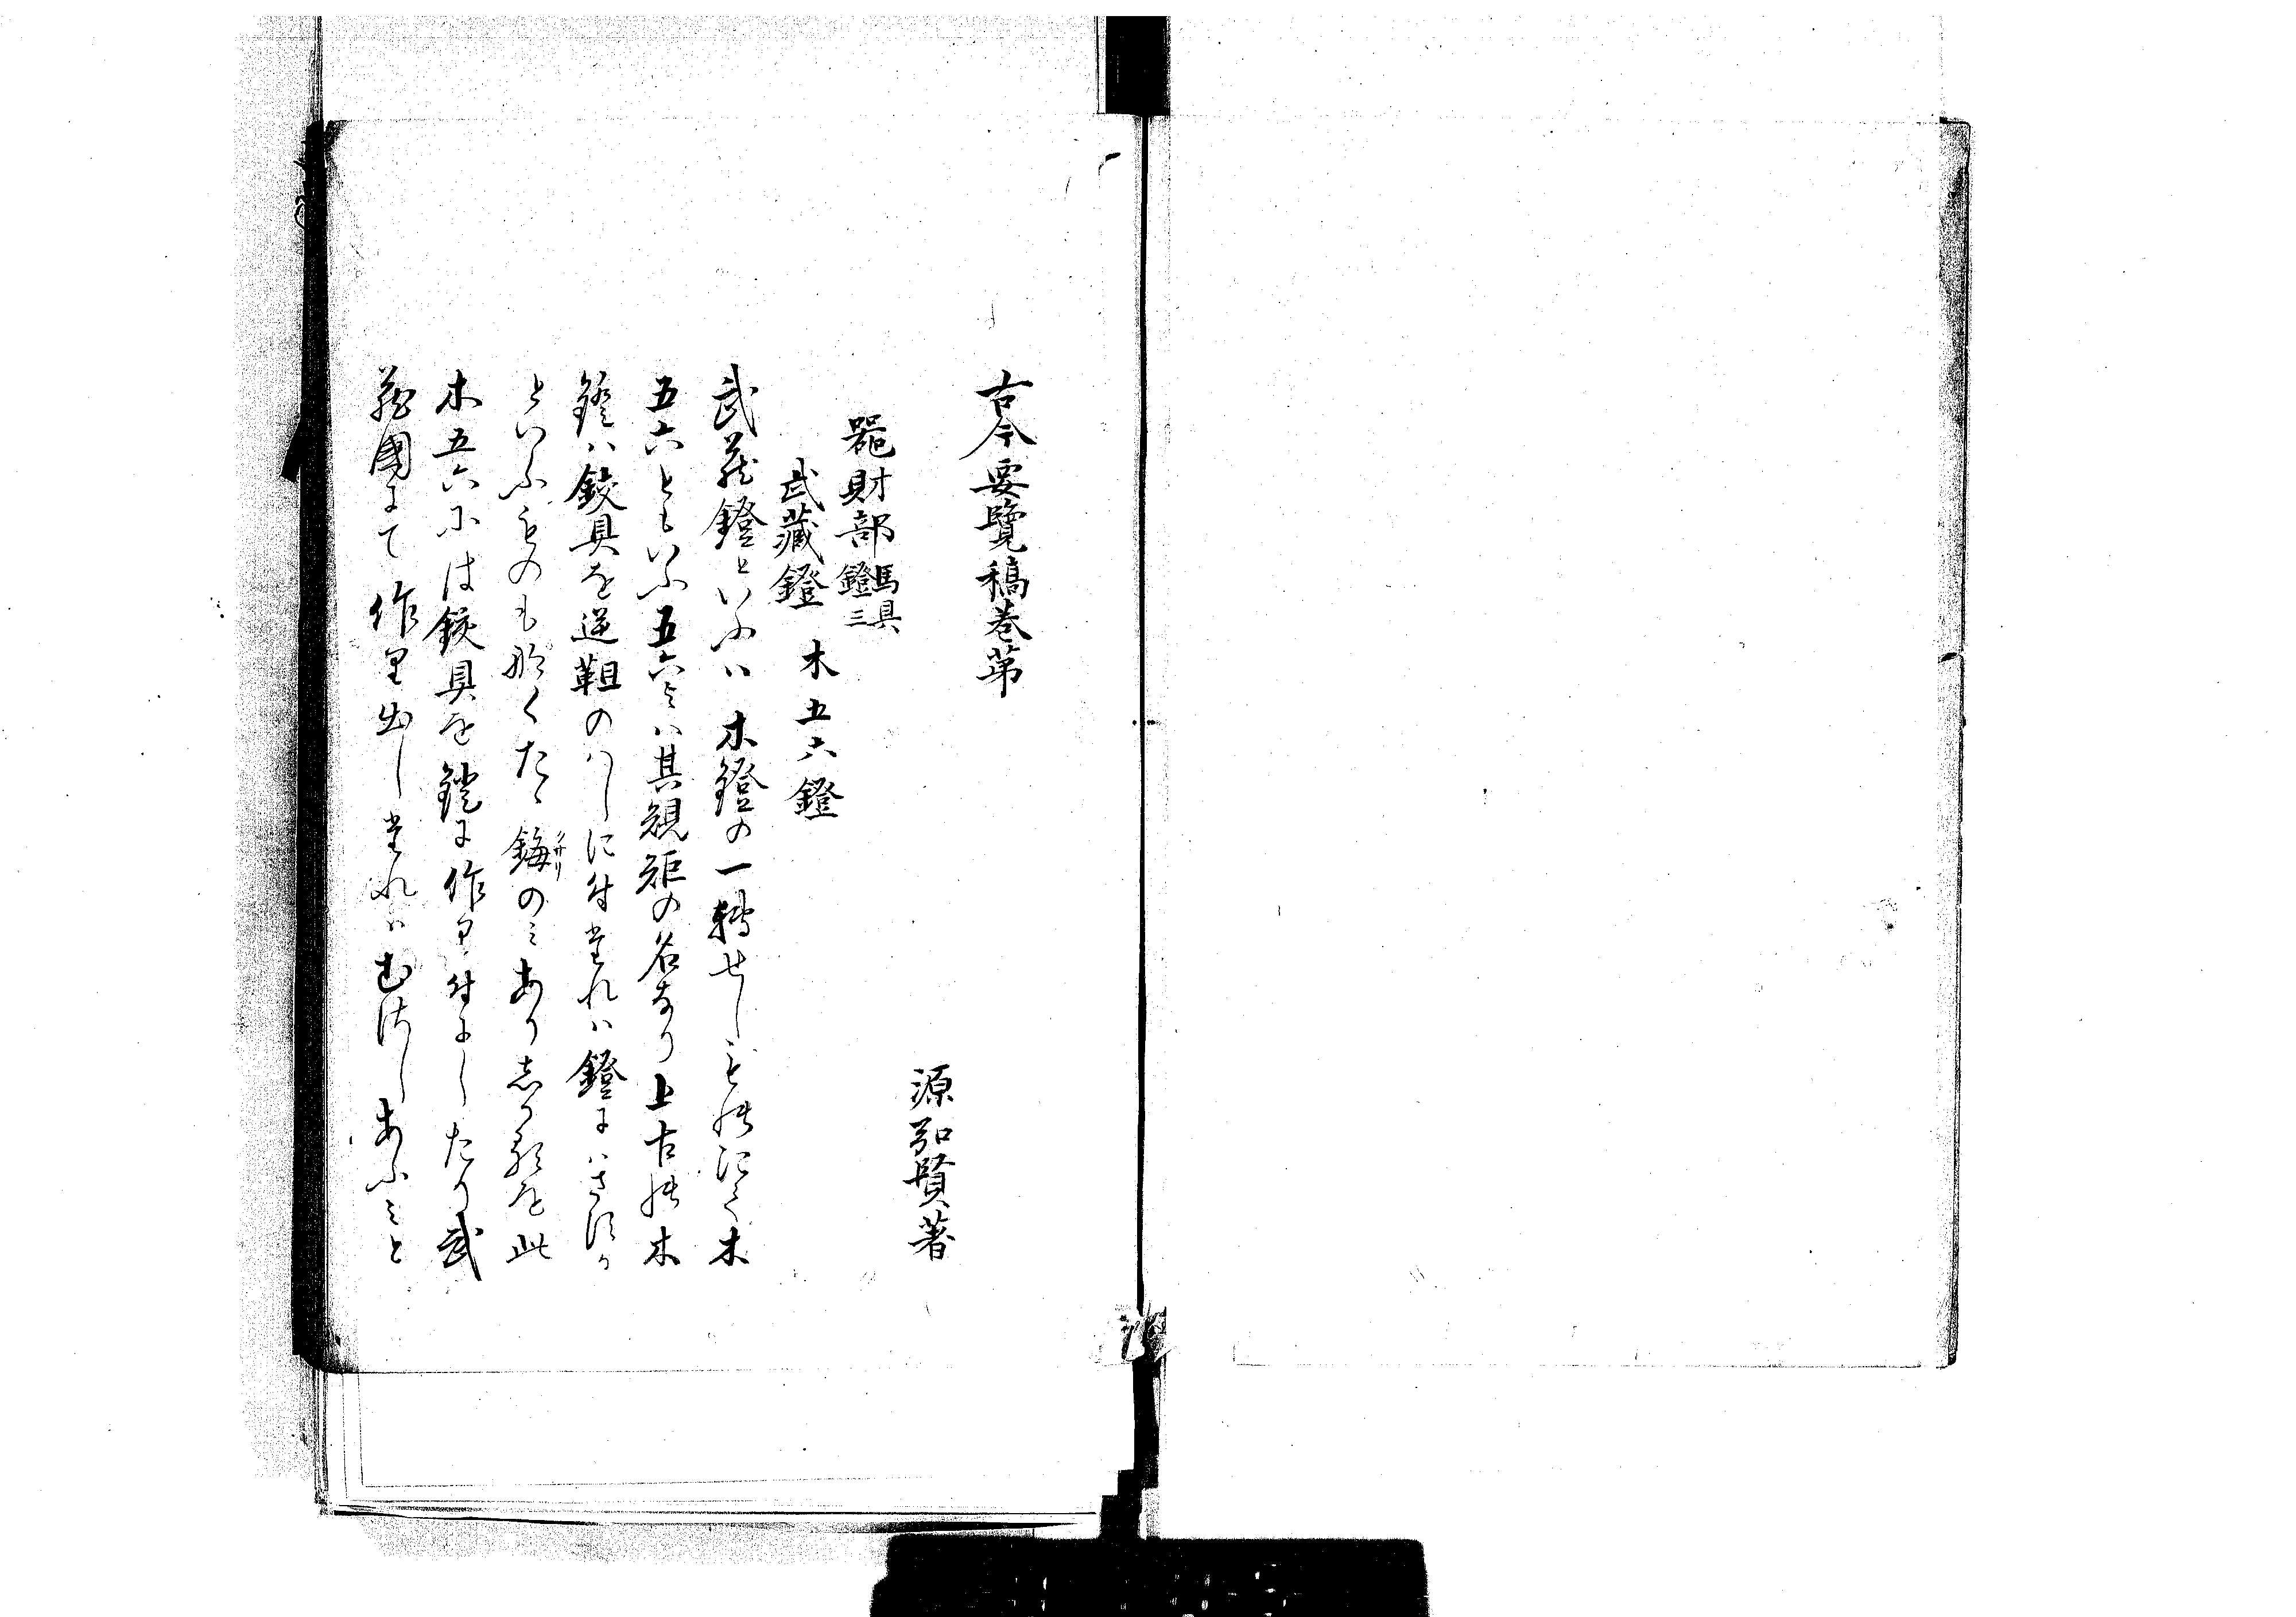 古今要覽稿巻苐
源弘賢著
器財部 馬具 鐙三
武藏鐙 木五六鐙
武藏鐙といふハ木鐙の一轉せしものにて木
五六ともいふ五六とハ其規矩の名なり上古の木
鐙ハ鉸具を逆靼のはしに付たれハ鐙にハさすか
といふものも形くたゝ鋂のミありしかるを此
木五六には鉸具を鐙に作り付にしたり武
藏國にて作り出したれハむさしあふミと